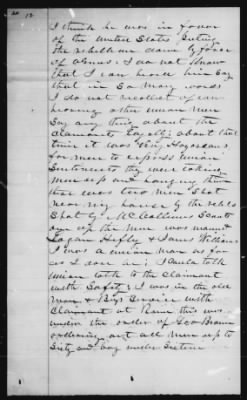 12
I think he was in favor
of the United States puting
the rebellion down by force
of armes. I do not know
that I can heard him Say
that in So many words
I do not recollect of ever
hearing other union men
Say any thing about the
Claimants loyalty about that
time it was very Hazardous
for men to express union
Sentiments they were taking
men up and hanging them
thar was two men Shot
near my house by the rebels
Shot by McCollums Scouts
one of the men was named
Logan Hefly & James Williams
I was a union man as far
as I could I could talk
union talk to the Claimant
with Safety I was in the old
men & Boys Service with
Claimant at Rome this was
under the order of Gov Brown
ordering out all men up to
Sixty and boys under Sixteen